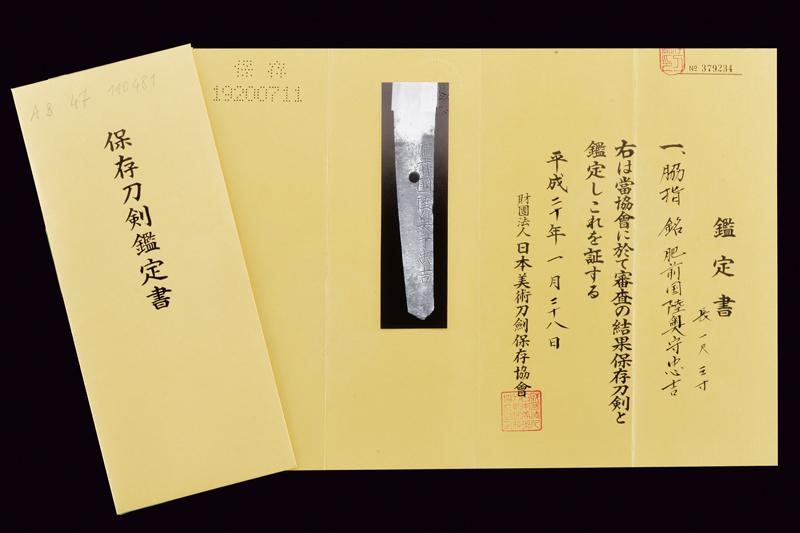 AB 47 110481
保存刀剣鑑定書
保存
19200711
№ 379234
鑑定書
一、脇指 銘 肥前国陸奥守忠吉
長一尺三寸
右は當協會に於て審査の結果保存刀剣と
鑑定しこれを証する
平成二十年一月二十八日
財團法人日本美術刀劍保存協會